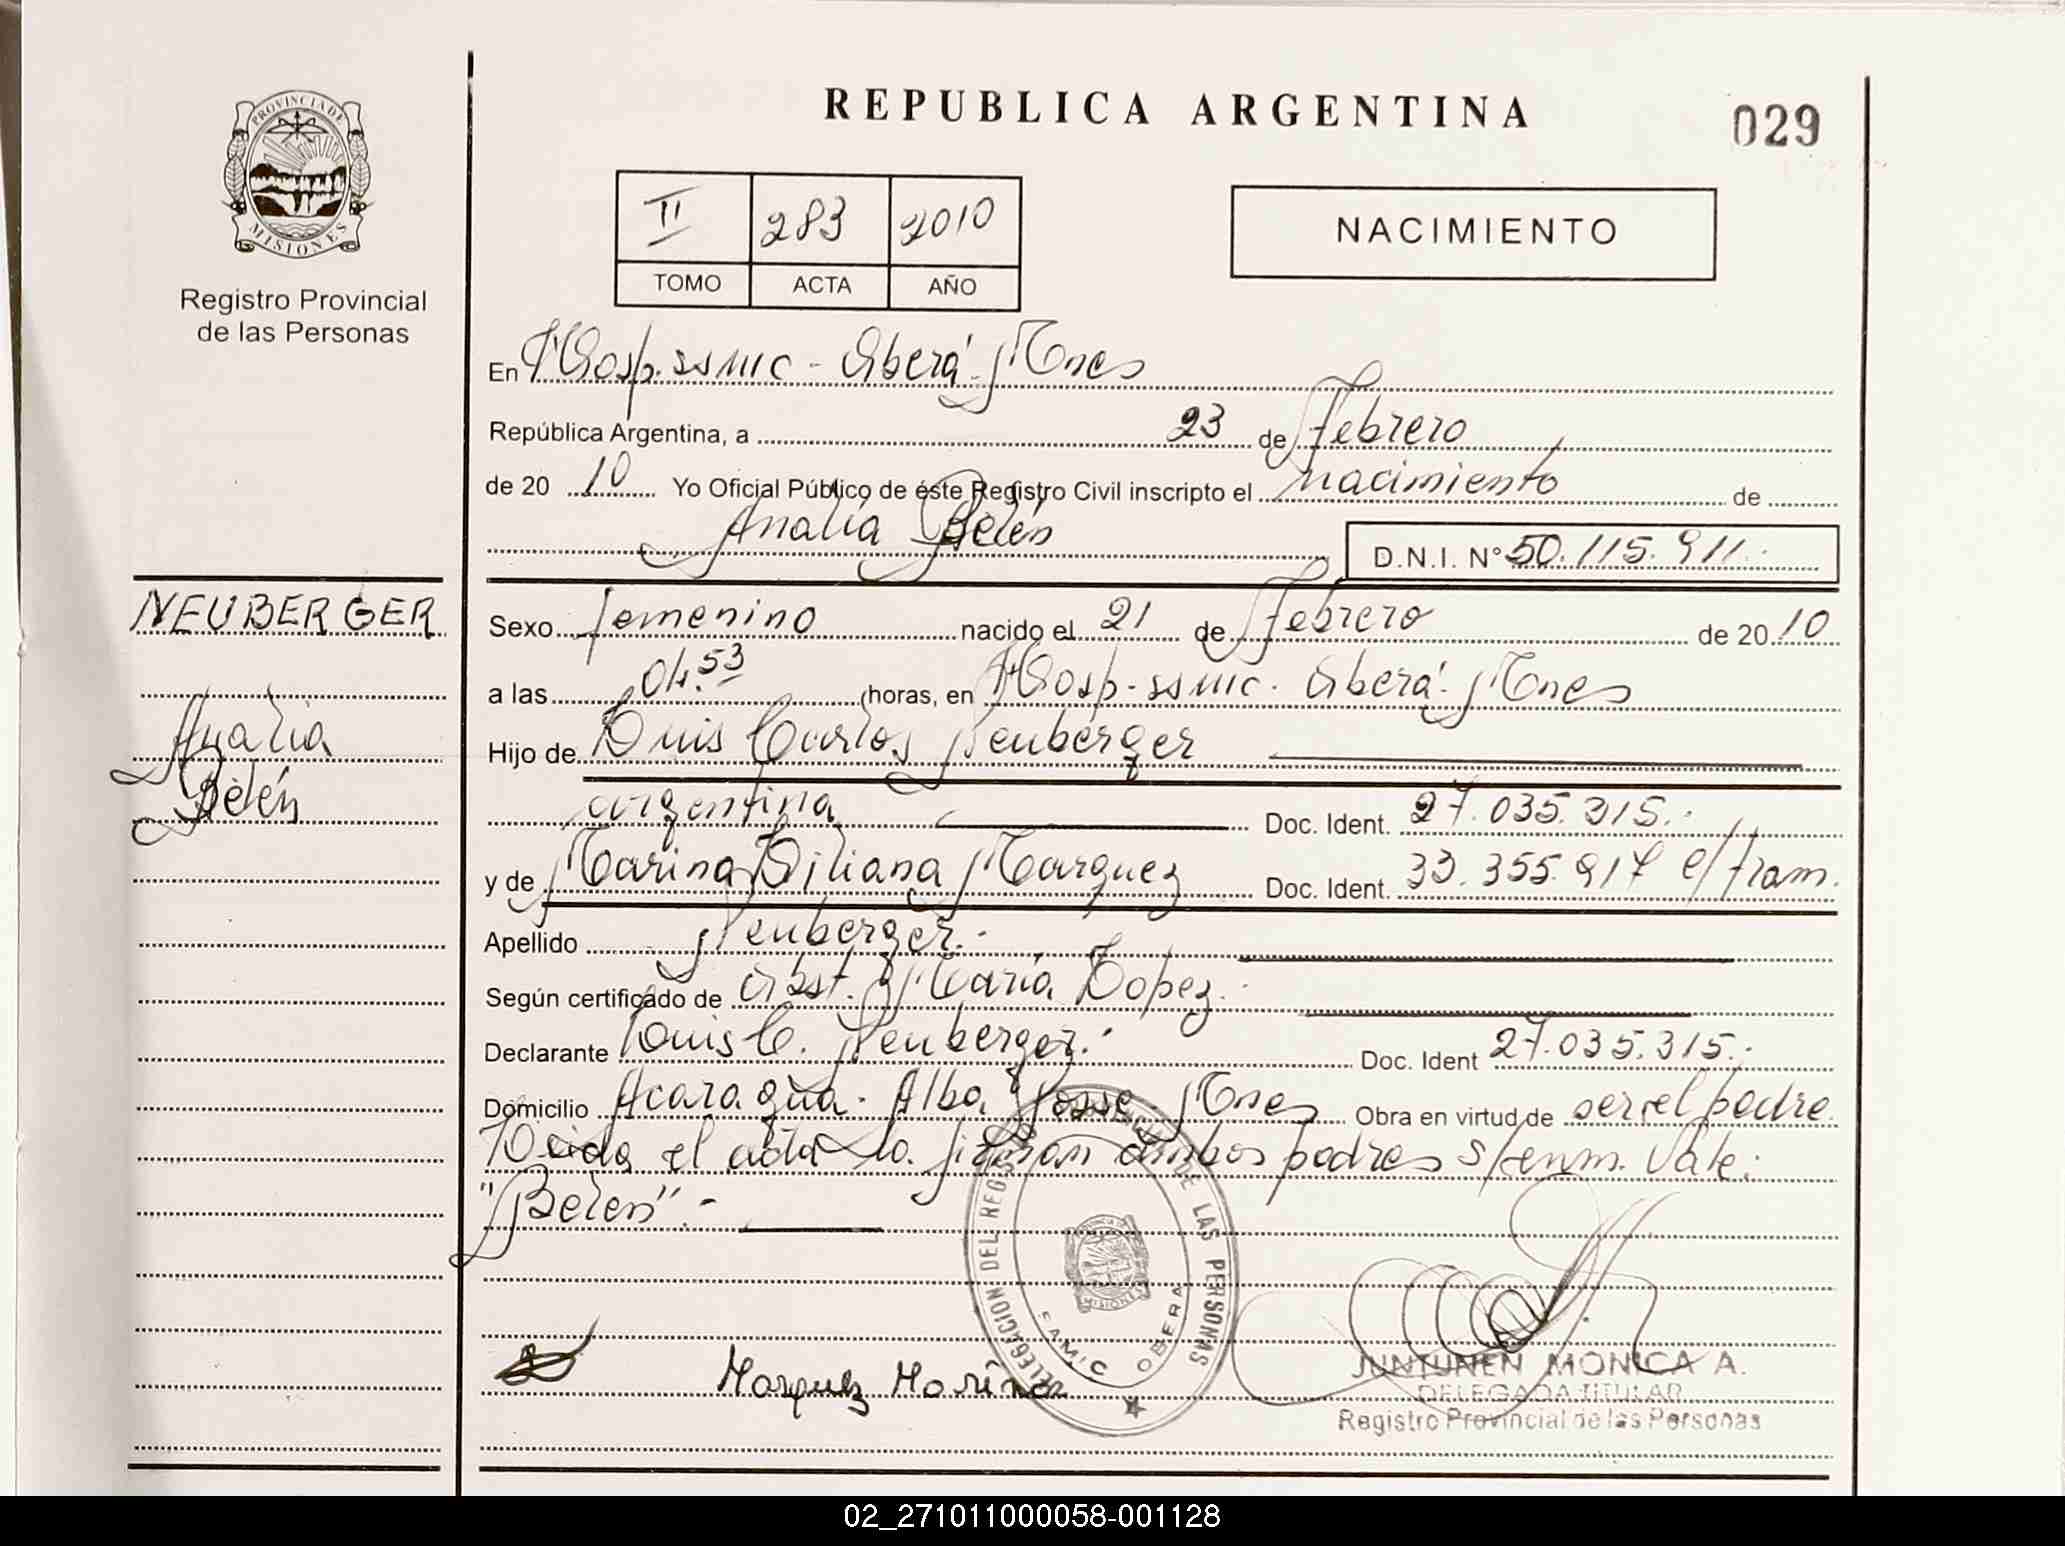 REPUBLICA ARGENTINA
029
PROVINCIA DE
MISIONES
Registro Provincial
de las Personas
II 283 2010
TOMO ACTA AÑO
NACIMIENTO
En Hosp. SSMIC - Oberá - Mnes
República Argentina, a 23 de Febrero
de 20 10 Yo Oficial Público de éste Registro Civil inscripto el nacimiento de
Analía Belén
D.N.I. N° 50.115.911.-
NEUBERGER
Analía
Belén
Sexo femenino nacido el 21 de Febrero de 20 10
a las 04.53 horas, en Hosp. SSMIC. Oberá - Mnes
Hijo de Luis Carlos Neuberger
argentina Doc. Ident. 27.035.315.-
y de Marina Liliana Marquez Doc. Ident. 33.355.917 e/tram.
Apellido Neuberger.-
Según certificado de Obst. María Lopez.-
Declarante Luis C. Neuberger.- Doc. Ident 27.035.315.-
Domicilio Acaragua. Alba Posse Mnes Obra en virtud de ser el padre.
Leida el acta la firman ambos padres s/enm. Vale:
"Belen".-
DELEGACION DEL REGISTRO PROVINCIAL DE LAS PERSONAS
MISIONES
SAMIC OBERA
Marquez Marina
JUNTUNEN MONICA A.
DELEGADA TITULAR
Registro Provincial de las Personas
02_271011000058-001128